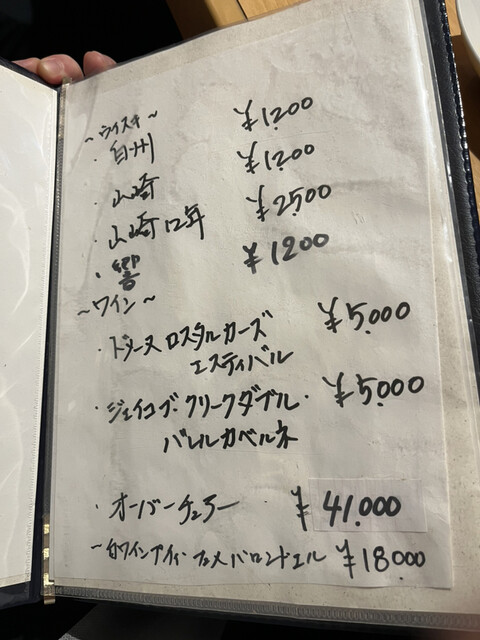 ~ウイスキー~
・白州 ¥1200
・山崎 ¥1200
・山崎12年 ¥2500
・響 ¥1200
~ワイン~
・ドメーヌ ロスタルカーズ ¥5.000
エスティバル
・ジェイコブ・クリークダブル・ ¥5.000
バレルカベルネ
・オーバーチュアー ¥41.000
~白ワイン ¥18.000